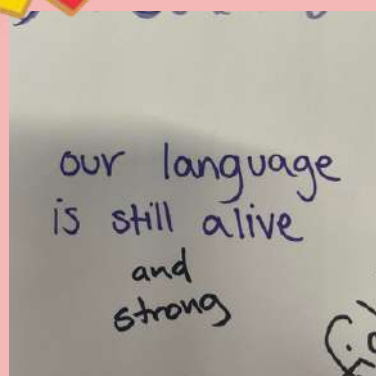 our language
is still alive
and
strong